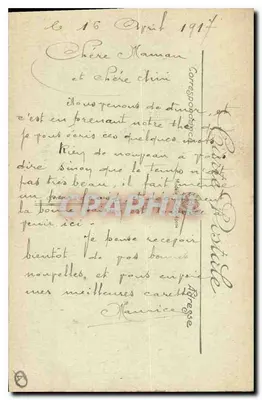 le 16 April 1917
Chère Maman
et chère Mimi
Nous venons de diner, et
c'est en prenant notre thé
je vous écris ces quelques mots
Rien de nouveau à
dire sinon que le temps n'
pas très beau, il fait
un
la
venir ici.
Je pense recevoir
bientôt de vos bonnes
nouvelles, et vous envoie
mes meilleures caresses
Maurice
Correspondance
Carte Postale
Adresse